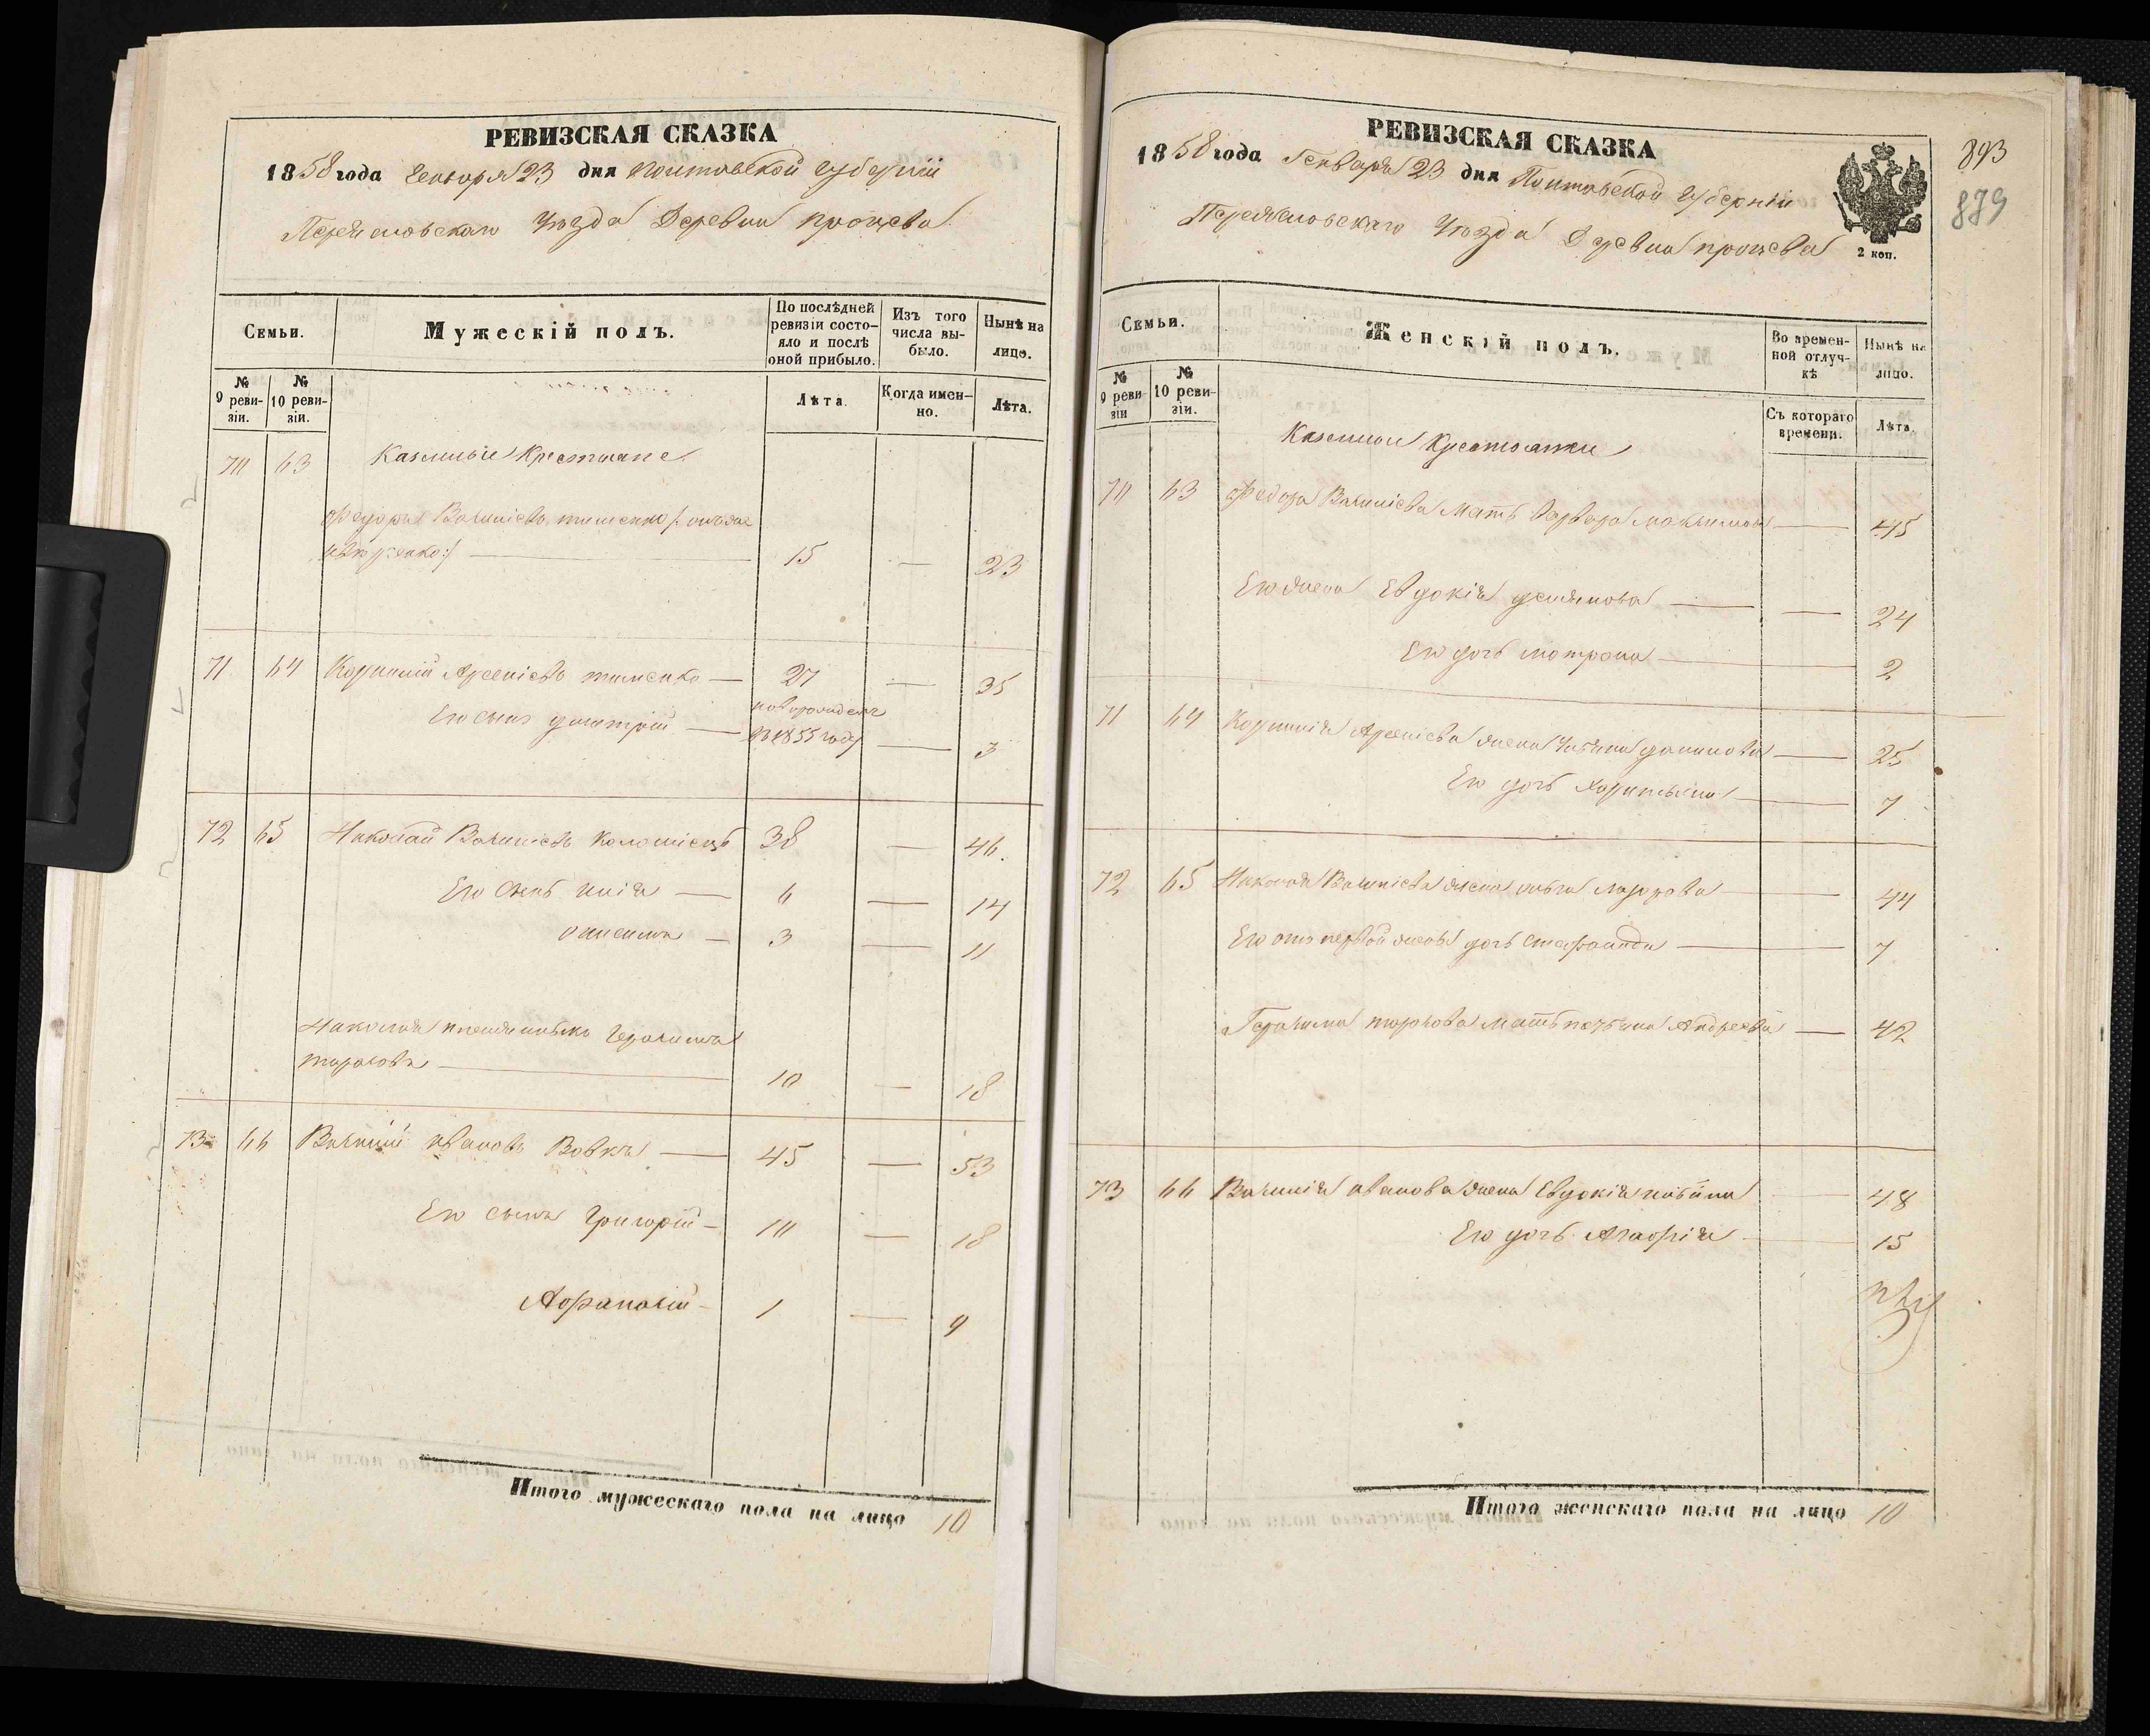 РЕВИЗСКАЯ СКАЗКА
1858 года Генваря 23 дня Полтавской Губерніи
Переясловскаго Уѣзда Деревни Процева
Семьи.
Мужескій полъ.
По послѣдней ревизіи состояло и послѣ оной прибыло.
Изъ того числа выбыло.
Нынѣ на лицо.
№ 9 ревизіи.
№ 10 ревизіи.
Лѣта.
Когда именно.
Лѣта.
70 63 Казенные Крестьяне
Федоръ Василіевъ тименко
15 — 23
71 64 Корнилій Арсеніевъ тименко — 27 — 35
новорожденъ
Его сынъ дмитрій — въ 1855 году — 3
72 65 Николай Василіевъ Коломіецъ 38 — 46.
Его сынъ илія — 6 — 14
онисимъ — 3 — 11
Николая племянникъ Герасимъ
тарасовъ — 10 — 18
73 66 Василій ивановъ Вовкъ — 45 — 53
Его сынъ Григорій — 10 — 18
Афанасій — 1 — 9
Итого мужескаго пола на лицо 10
РЕВИЗСКАЯ СКАЗКА
1858 года Генваря 23 дня Полтавской Губерніи
Переясловскаго Уѣзда Деревни Процева
2 коп.
893
879
Семьи.
Женскій полъ.
Во временной отлучкѣ
Нынѣ на лицо.
№ 9 ревизіи
№ 10 ревизіи.
Съ котораго времени.
Лѣта.
Казенные Крестьянки
70 63 Федора Василіева Мать Варвара максимова — 45
Его жена Евдокія демянова — — 24
Его дочь мотрона — 2
71 64 Корнилія Арсеніева жена данилова — 25
Его дочь Харитына — 7
72 65 Николая Василіева жена лазорова — 44
Его отъ первой жены дочь Стефанида — 7
Герасима тарасова мать татьяна Андреева — 42
73 66 Василія иванова жена Евдокія — 48
Его дочь Агафія — 15
Итого женскаго пола на лицо 10